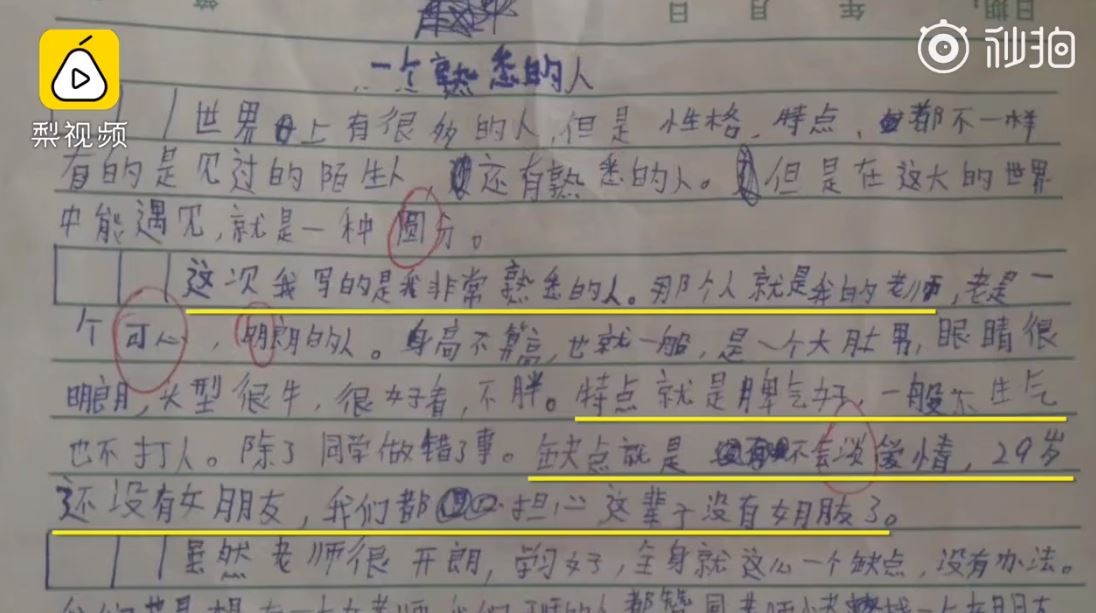 日期： 年 月 日 第
秒拍
梨视频
一个熟悉的人
世界上有很多的人,但是性格、特点、都不一样
有的是见过的陌生人 还有熟悉的人。但是在这大的世界
中能遇见,就是一种圆分。
这次我写的是我非常熟悉的人。那个人就是我的老师,老是一
个可心,明朗的人。身高不算高,也就一般,是一个大肚男,眼睛很
明朗,大型很牛,很好看,不胖。特点就是脾气好,一般不生气
也不打人。除了同学做错了事。缺点就是 不会谈爱情,29岁
还没有女朋友,我们都 担心这辈子没有女朋友了。
虽然老师很开朗,学习好,全身就这么一个缺点,没有办法。